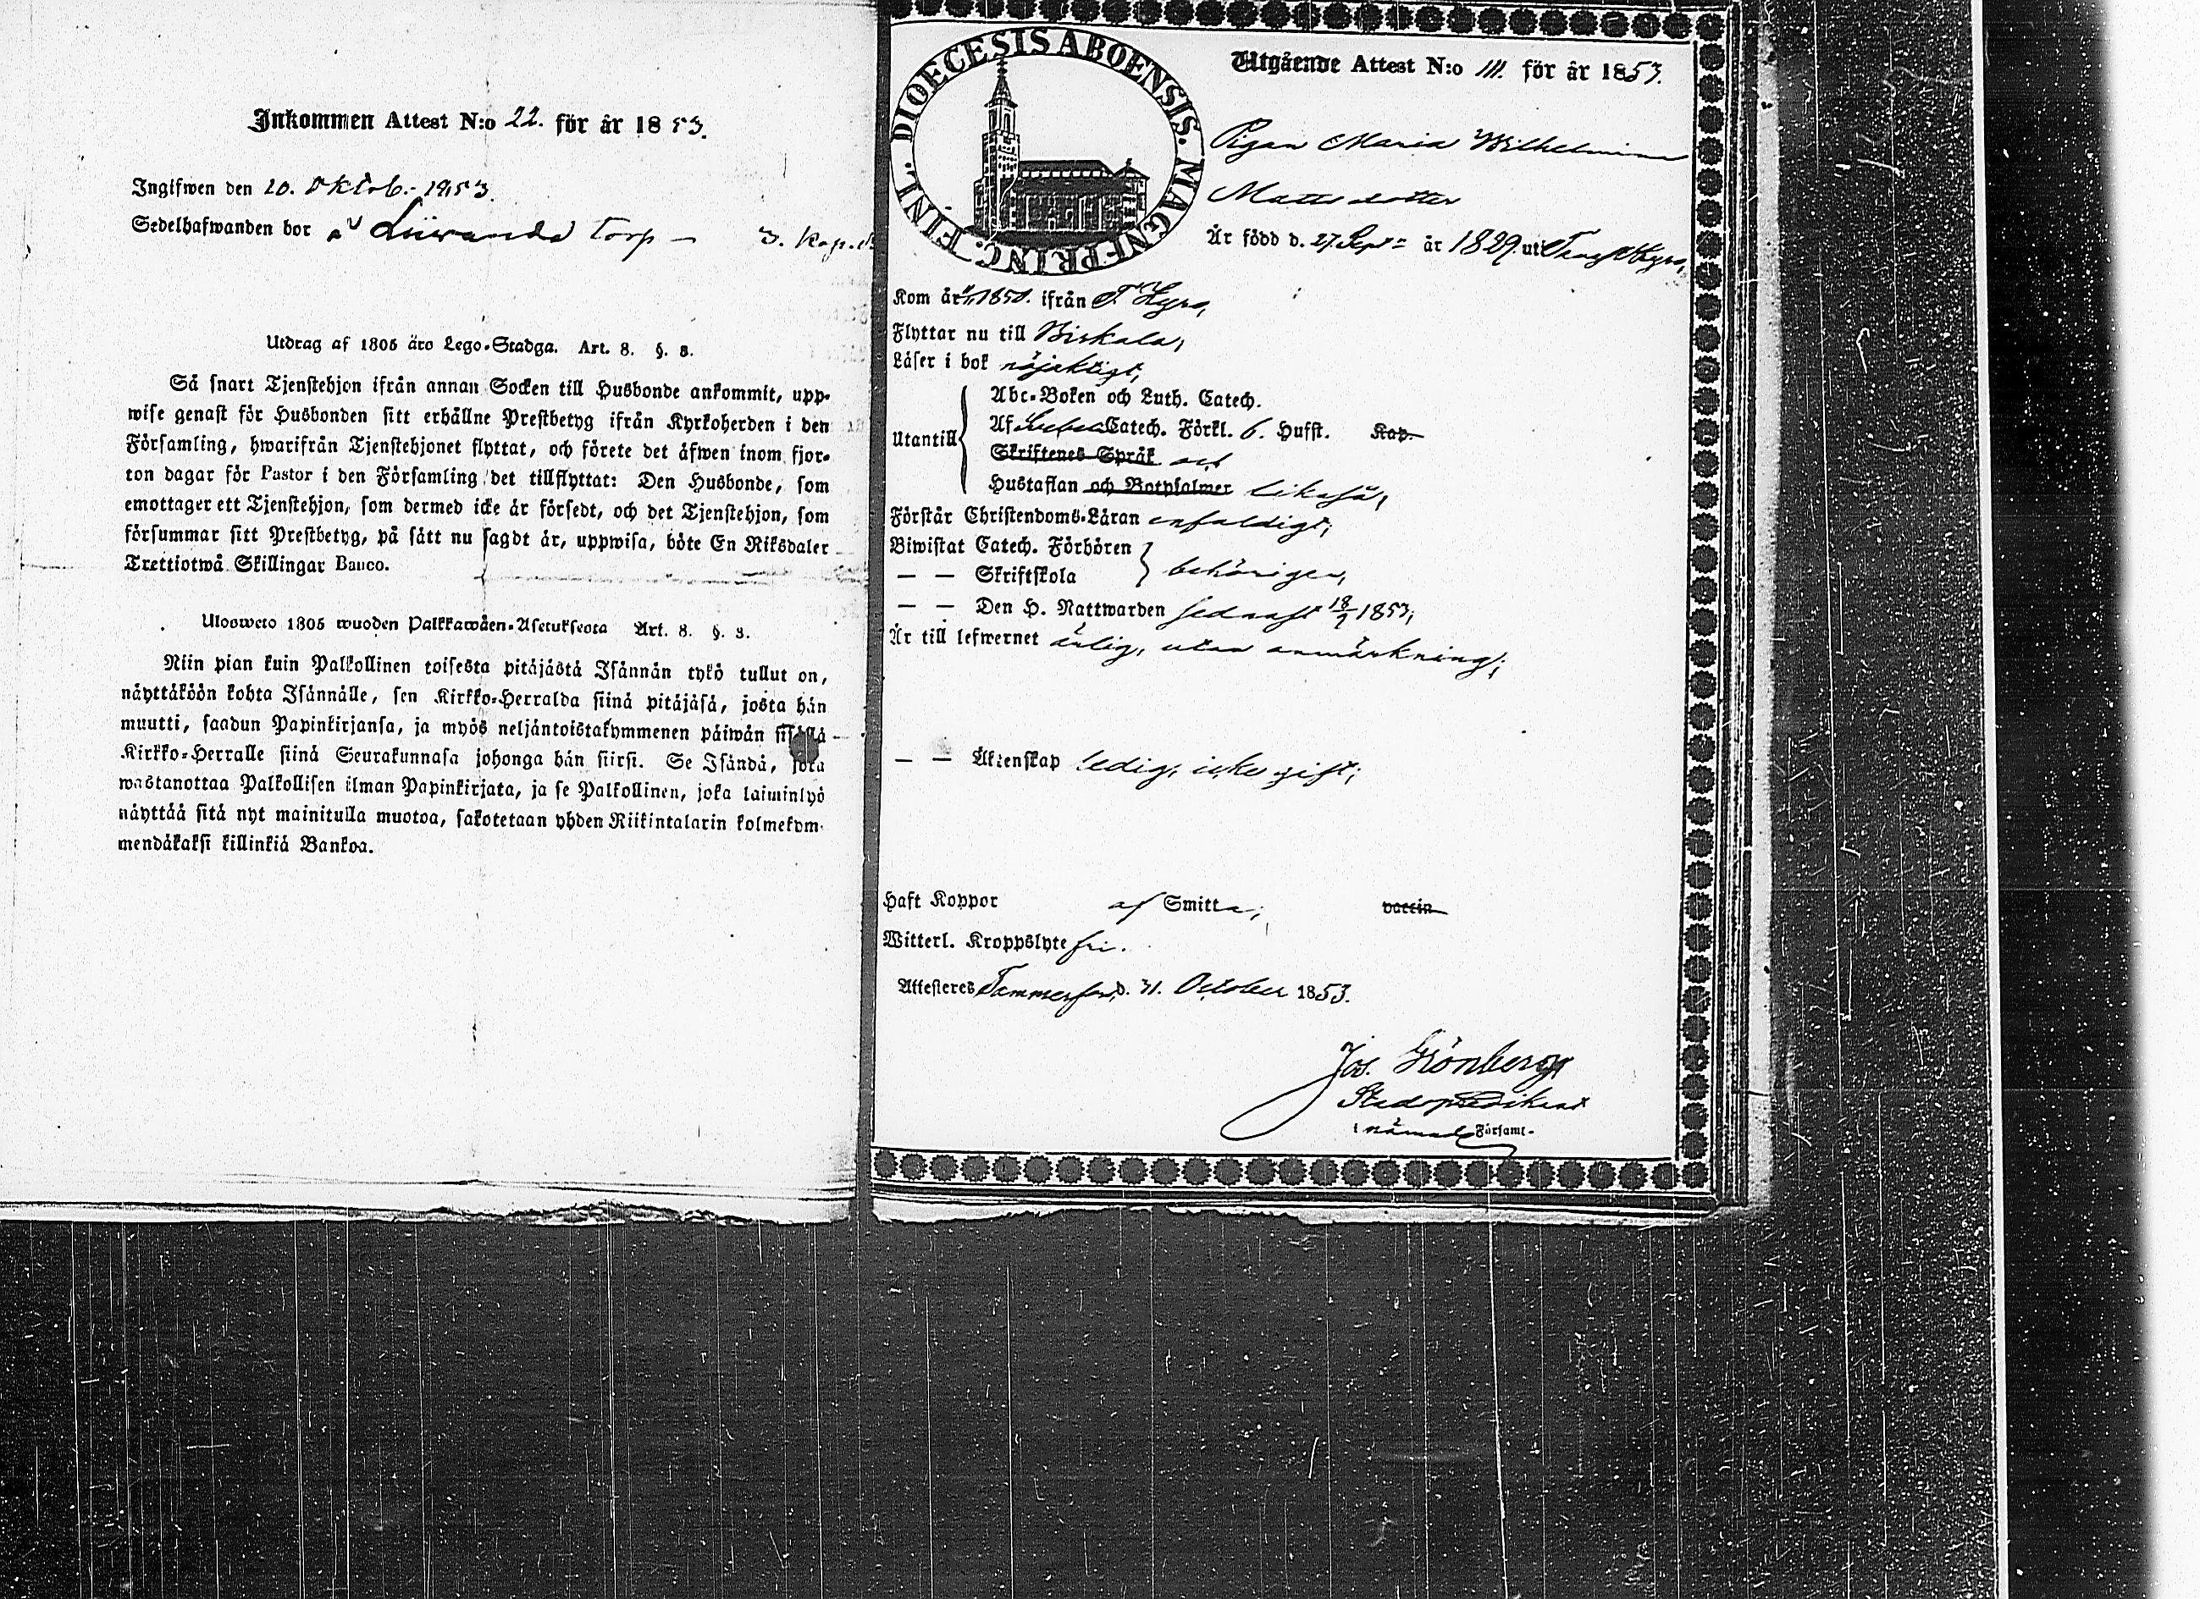 Inkommen Attest N:o 22. för år 1853.
Ingifwen den 20. Oktob. 1853.
Sedelhafwanden bor å torp –
Utdrag af 1805 åro Lego-Stadga. Art. 8. §. 3.
Så snart Tjenstehjon ifrån annan Socken till Husbonde ankommit, upp-
wise genast för Husbonden sitt erhållne Prestbetyg ifrån Kyrkoherden i den
Församling, hwarifrån Tjenstehjonet flyttat, och förete det äfwen inom fjor-
ton dagar för Pastor i den Församling det tillflyttat: Den Husbonde, som
emottager ett Tjenstehjon, som dermed icke är försedt, och det Tjenstehjon, som
försummar sitt Prestbetyg, på sätt nu sagdt är, uppwisa, böte En Riksdaler
Trettiotwå Skillingar Banco.
Ulosweto 1805 wuoden Palkkawäen-Asetuksesta Art. 8. §. 3.
Niin pian kuin Palkollinen toisesta pitäjästä Isännän tykö tullut on,
näyttäköön kohta Isännälle, sen Kirkko-Herralda siinä pitäjäsä, josta hän
muutti, saadun Papinkirjansa, ja myös neljäntoistakymmenen päiwän sisällä
Kirkko-Herralle siinä Seurakunnasa johonga hän siirsi. Se Isändä, joka
wastanottaa Palkollisen ilman Papinkirjata, ja se Palkollinen, joka laiminlyö
näyttää sitä nyt mainitulla muotoa, sakotetaan yhden Riikintalarin kolmekym-
mendäkaksi killinkiä Bankoa.
DIOECESIS ABOENSIS. MAGN. PRINC. FINL.
Utgående Attest N:o 111. för år 1853.
Pigan Maria Wilhelmina
Mattsdotter
Är född d. 27 Sept. år 1829. uti
Kom år 1850. ifrån T. Kyro,
Flyttar nu till Birkala,
Läser i bok nöjaktigt,
Utantill
Abc-Boken och Luth. Catech.
Af Catech. Förkl. 6. Hufst. Kap.
Skriftenes Språk och
Hustaflan och Botpsalmer likaså,
Förstår Christendoms-Läran enfaldigt;
Biwistat Catech. Förhören
— — Skriftskola behörigen,
— — Den H. Nattwarden sednast 18/9 1853;
Är till lefwernet ärlig, utan anmärkning;
— — Äktenskap ledig, icke gift;
Haft Koppor af Smitta; vaccin
Witterl. Kroppslyte fri.
Attesteres Tammerfors d. 31. October 1853.
Jos. Grönberg
Stadspredikant
i nämnde Församl.